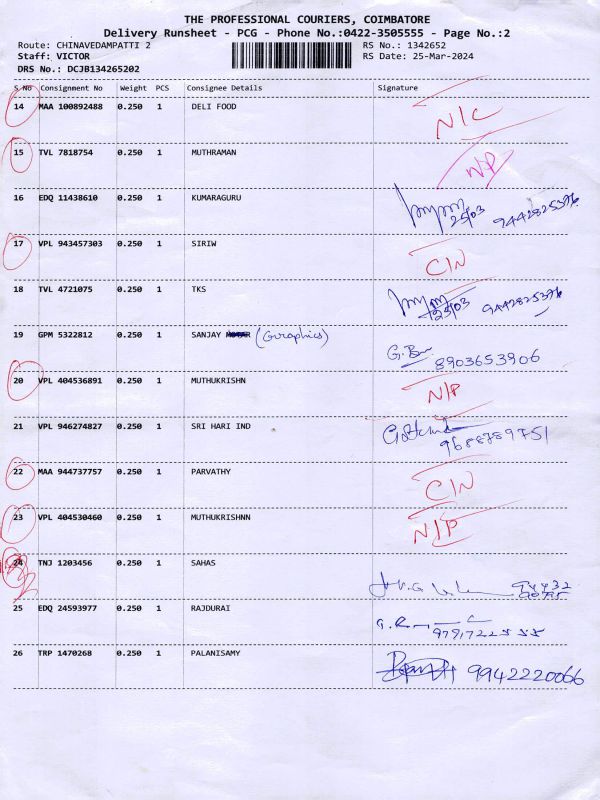 THE PROFESSIONAL COURIERS, COIMBATORE
Delivery Runsheet - PCG - Phone No.:0422-3505555 - Page No.:2
Route: CHINAVEDAMPATTI 2 RS No.: 1342652
Staff: VICTOR RS Date: 25-Mar-2024
DRS No.: DCJB134265202
S No Consignment No Weight PCS Consignee Details Signature
14 MAA 100892488 0.250 1 DELI FOOD N/C
15 TVL 7818754 0.250 1 MUTHRAMAN N/P
16 EDQ 11438610 0.250 1 KUMARAGURU 25/03 9442825396
17 VPL 943457303 0.250 1 SIRIW C/N
18 TVL 4721075 0.250 1 TKS 25/03 9442825396
19 GPM 5322812 0.250 1 SANJAY (Graphics) 8903653906
20 VPL 404536891 0.250 1 MUTHUKRISHN N/P
21 VPL 946274827 0.250 1 SRI HARI IND 9688789751
22 MAA 944737757 0.250 1 PARVATHY C/N
23 VPL 404530460 0.250 1 MUTHUKRISHNN N/P
24 TNJ 1203456 0.250 1 SAHAS
25 EDQ 24593977 0.250 1 RAJDURAI
26 TRP 1470268 0.250 1 PALANISAMY 9942220066